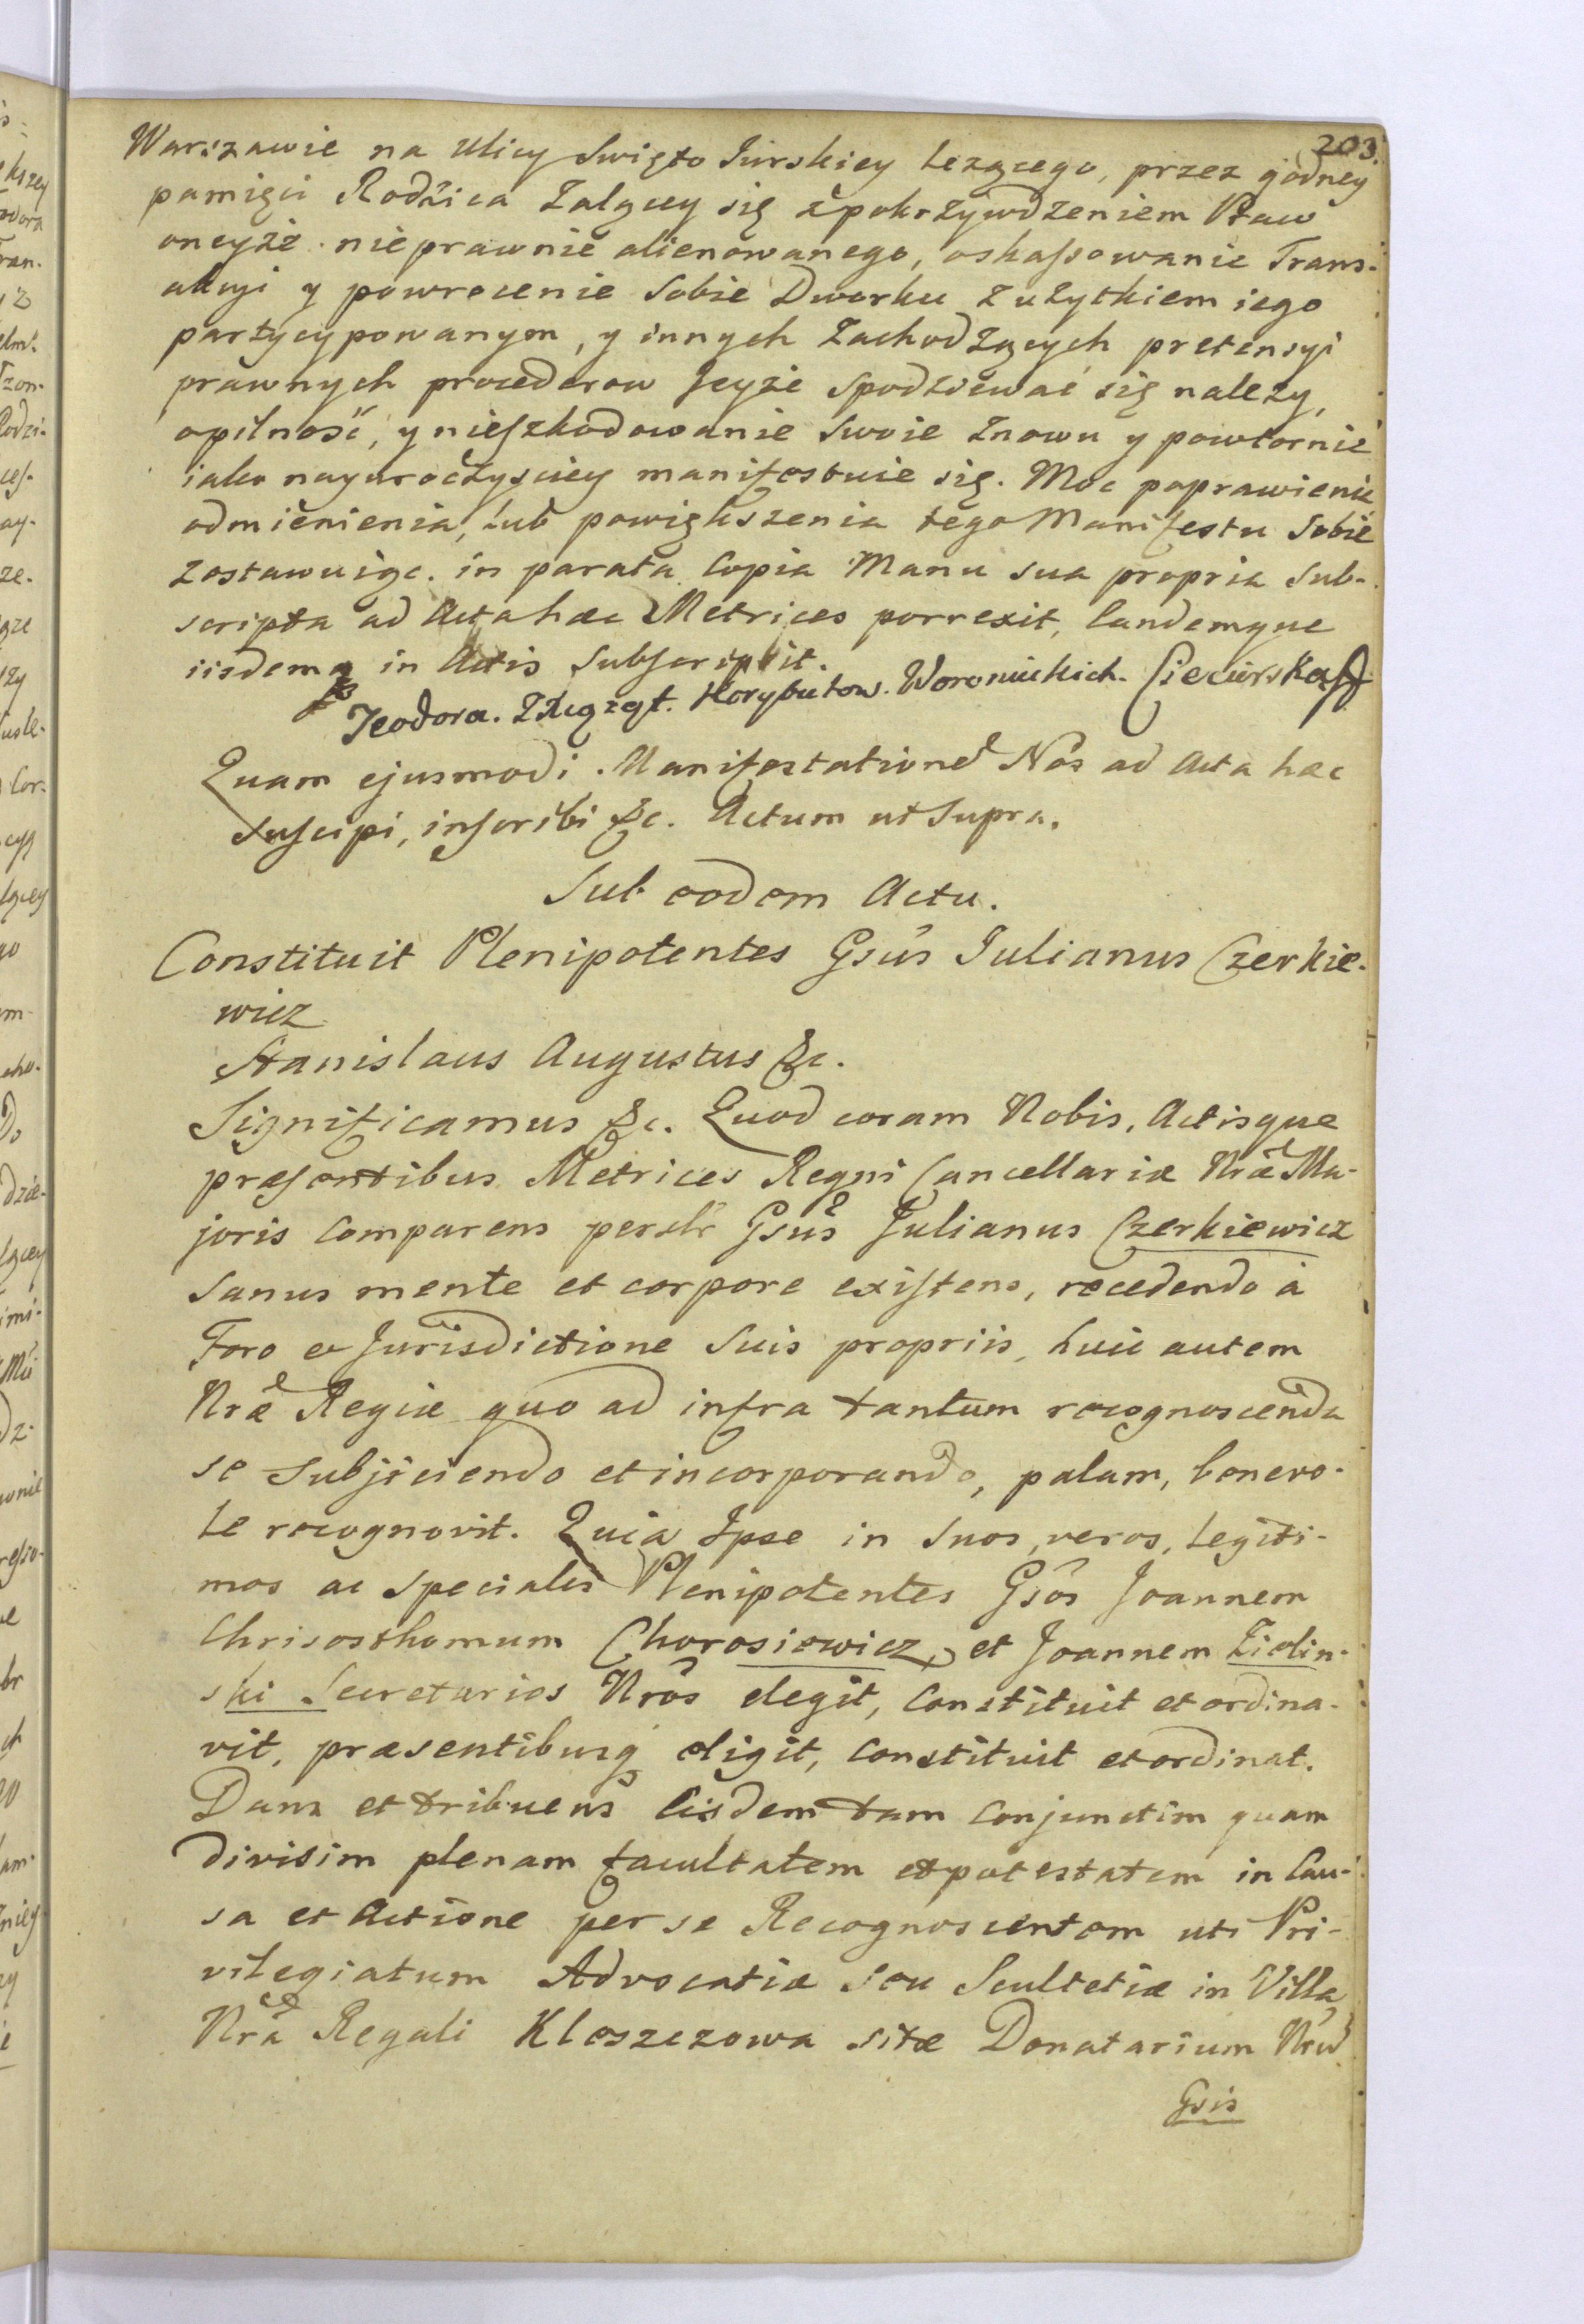 203.
Warszawie na Ulicy Swięto Jurskiey lezącego, przez godney
pamięci Rodzica Zalącey się zpokrzywdzeniem Praw
oneyże nieprawnie alienowanego, oskassowanie Trans-
akcyi y powrocenie sobie Dworku z użytkiem iego
partycypowanym, y innych zachodzących pretensyi
prawnych procederow Jeyże spodziewać się nalezy,
opilność, y nieszkodowanie swoie znowu y powtornie
iako nayuroczysciey manifestuie się. Moc poprawienia
odmienienia, lub powiększenia tego Manifestu sobie
zostawuiąc. in parata Copia Manu sua propria sub-
scripta ad Acta hæc Metrices porrexit, Eandemque
iisdemq in Actis subscripsit.
Teodora. Z Xiążąt. Korybutow. Woronieckich. Ciecierska
Quam ejusmodi Manifestationē Nos ad Acta hæc
suscipi, inscribi &c. Actum ut supra.
Sub eodem Actu.
Constituit Plenipotentes Gsus Julianus Czerkie-
wicz
Stanislaus Augustus &c.
Significamus &c. Quod coram Nobis, Actisque
præsentibus Metrices Regni Cancellariæ Nræ Ma-
joris Comparens persltr Gsus Julianus Czerkiewicz
sanus mente et corpore existens, recedendo à
Foro et Jurisdictione suis propriis, huic autem
Nræ Regiæ quo ad infra tantum recognoscenda
se subjiciendo et incorporando, palam, libere-
te recognovit. Quia Ipse in suos, veros, legiti-
mos ac speciales Plenipotentes Gsos Joannem
Chrisosthomum Chorosiewicz, et Joannem Zielin-
ski Secretarios Nros elegit, Constituit et ordina-
vit, præsentibusq eligit, Constituit et ordinat.
Dans et tribuens Eisdem tam Conjunctim quam
divisim plenam facultatem et potestatem in Cau-
sa et Actione per se Recognoscentem uti Pri-
vilegiatum Advocatiæ seu Scultetiæ in Villa
Nra Regali Kleszczowa sitæ Donatarium Nrū
Gsis